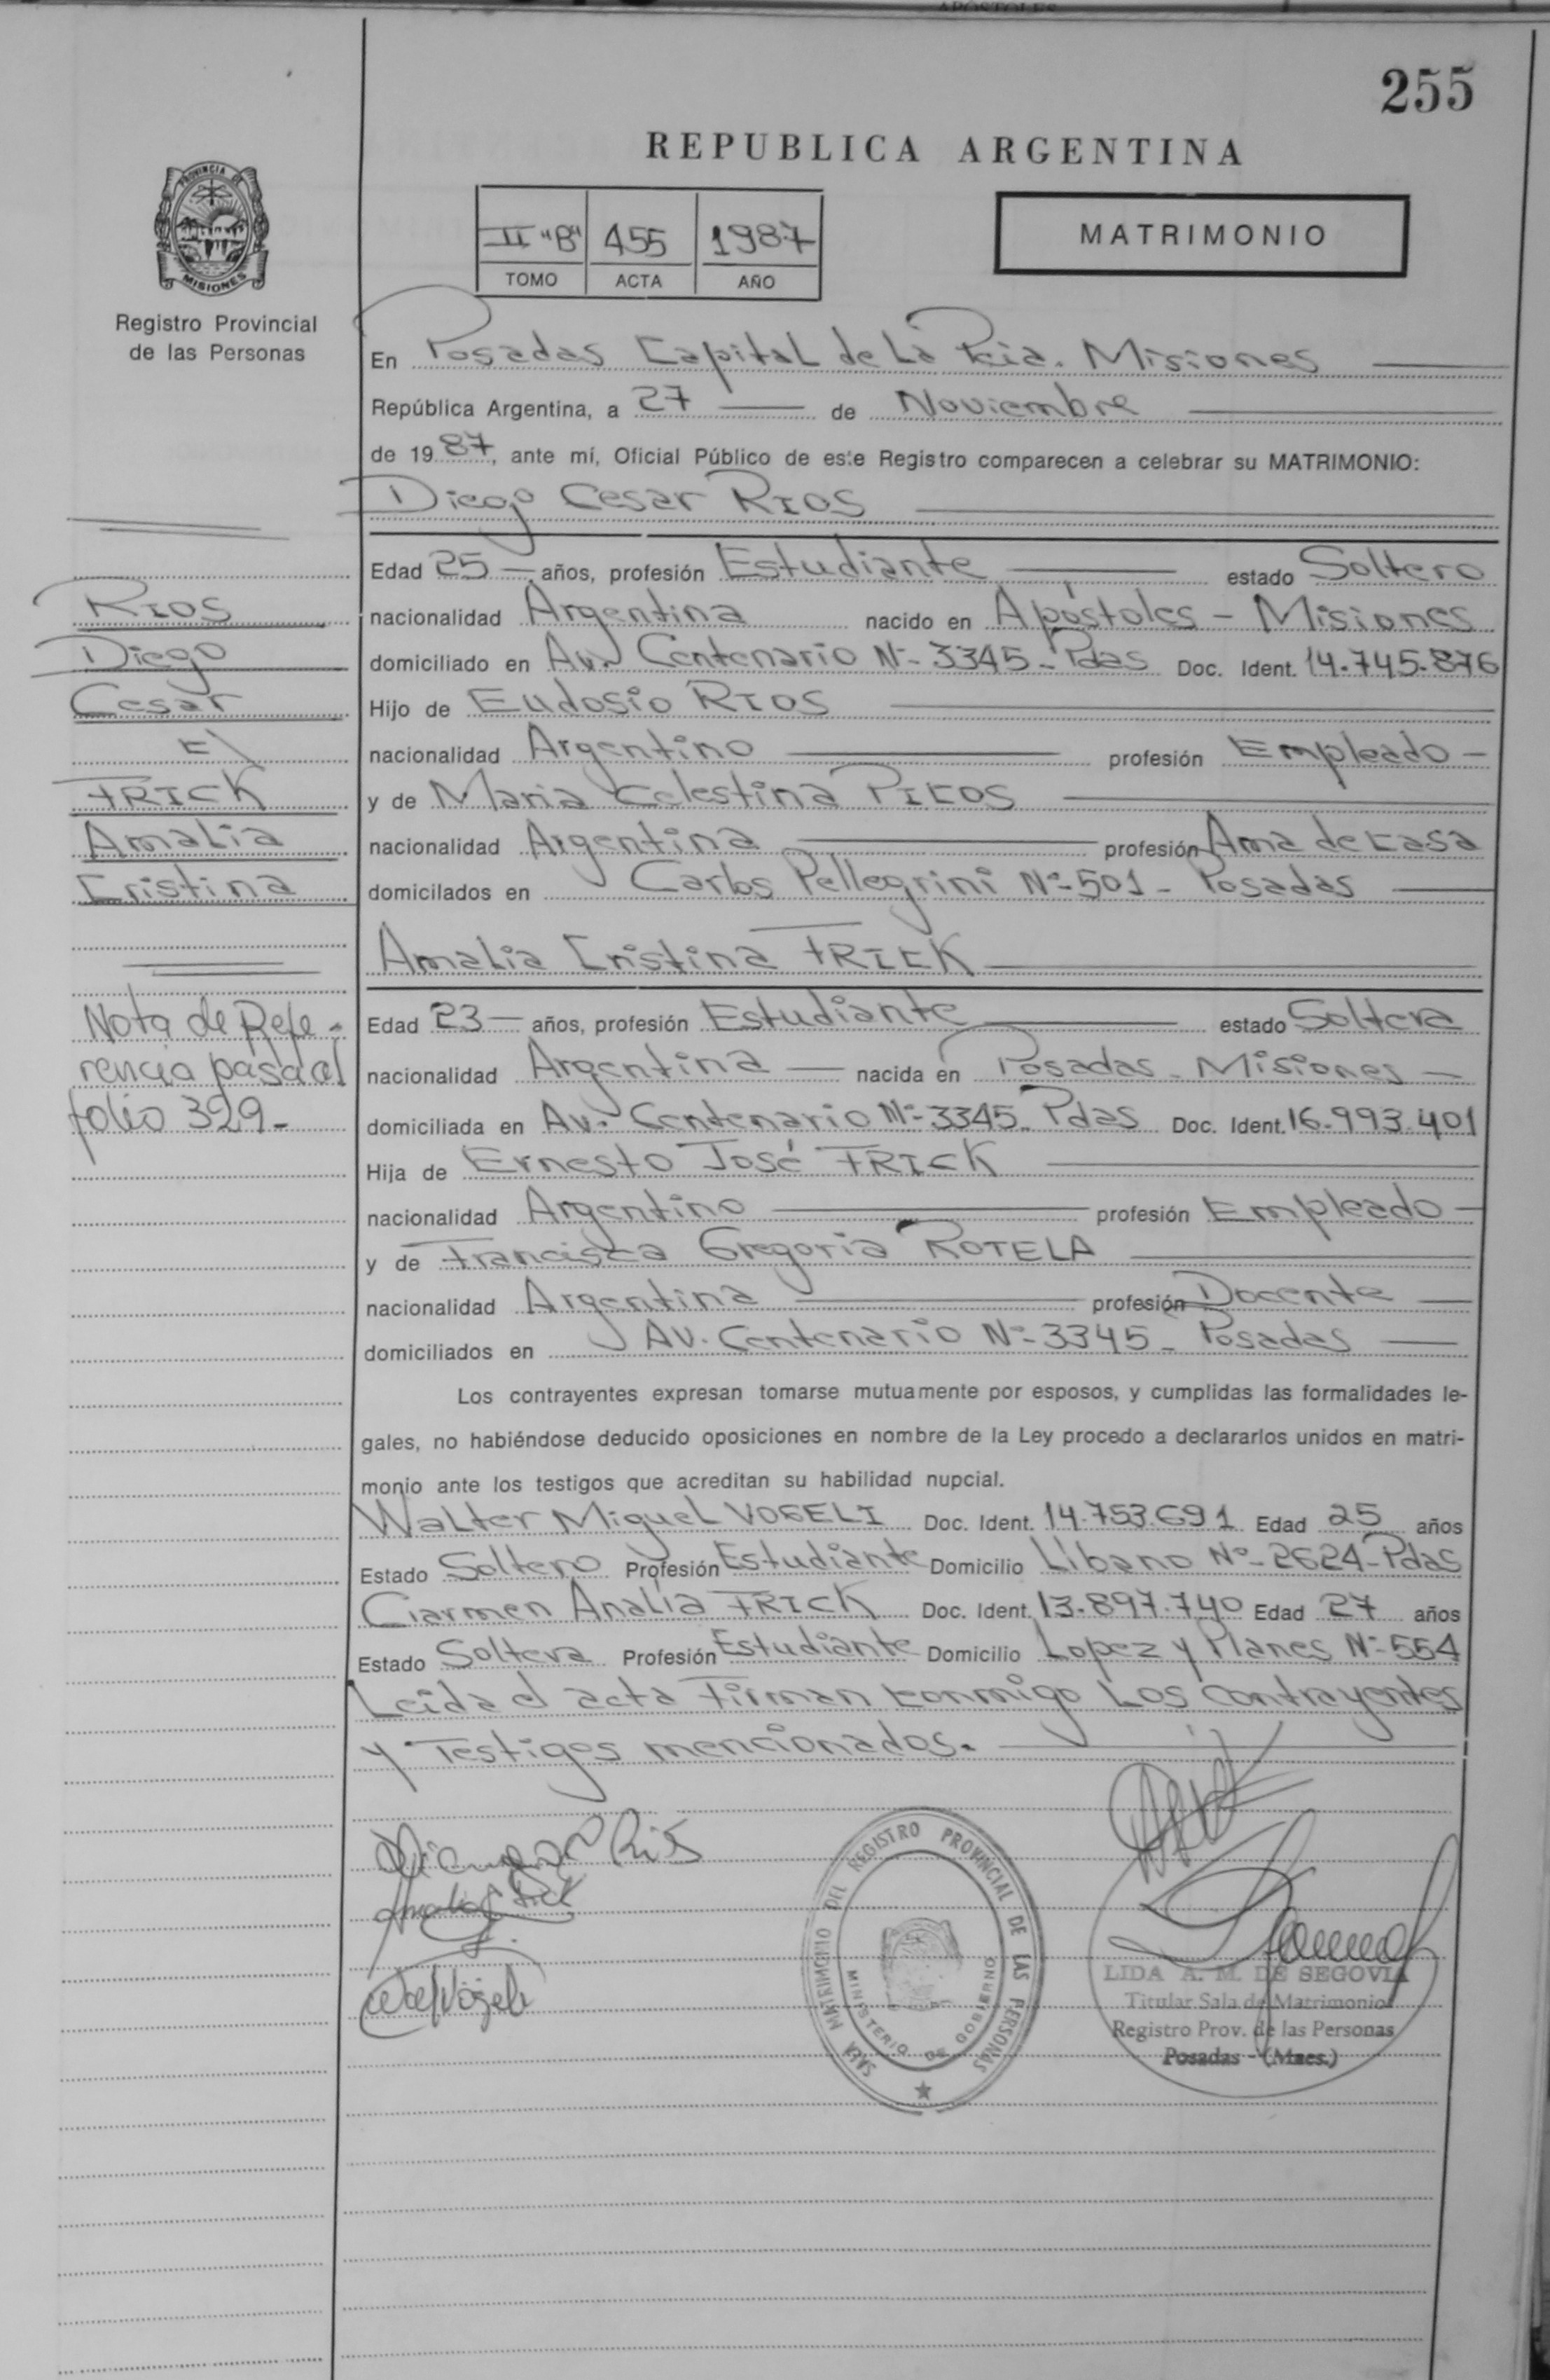 255
REPUBLICA ARGENTINA
II "B" 455 1987
TOMO ACTA AÑO
MATRIMONIO
PROVINCIA DE
MISIONES
Registro Provincial
de las Personas
En Posadas Capital de La Pcia. Misiones
República Argentina, a 27 de Noviembre
de 1987, ante mí, Oficial Público de este Registro comparecen a celebrar su MATRIMONIO:
Diego Cesar RIOS
Edad 25 años, profesión Estudiante estado Soltero
nacionalidad Argentina nacido en Apóstoles - Misiones
domiciliado en Av. Centenario Nº 3345 - Pdas Doc. Ident. 14.745.876
Hijo de Eudosio RIOS
nacionalidad Argentino profesión Empleado
y de Maria Celestina
nacionalidad Argentina profesión Ama de Casa
domicilados en Carlos Pellegrini Nº 501 - Posadas
Amalia Cristina FRICK
Edad 23 años, profesión Estudiante estado Soltera
nacionalidad Argentina nacida en Posadas - Misiones
domiciliada en Av. Centenario Nº 3345 - Pdas Doc. Ident. 16.993.401
Hija de Ernesto José FRICK
nacionalidad Argentino profesión Empleado
y de Francisca Gregoria ROTELA
nacionalidad Argentina profesión Docente
domiciliados en AV. Centenario Nº 3345 - Posadas
Los contrayentes expresan tomarse mutuamente por esposos, y cumplidas las formalidades le-
gales, no habiéndose deducido oposiciones en nombre de la Ley procedo a declararlos unidos en matri-
monio ante los testigos que acreditan su habilidad nupcial.
Walter Miguel VOGELI Doc. Ident. 14.753.691 Edad 25 años
Estado Soltero Profesión Estudiante Domicilio Líbano Nº 2624 - Pdas
Carmen Analia FRICK Doc. Ident. 13.897.740 Edad 27 años
Estado Soltera Profesión Estudiante Domicilio Lopez y Planes Nº 554
Leida el acta Firman conmigo Los contrayentes
y Testigos mencionados.
RIOS
Diego
Cesar
c/
FRICK
Amalia
Cristina
Nota de Refe-
rencia pasa al
folio 329-
SALA MATRIMONIO DEL REGISTRO PROVINCIAL DE LAS PERSONAS
MINISTERIO DE GOBIERNO
LIDA A. M. DE SEGOVIA
Titular Sala de Matrimonio
Registro Prov. de las Personas
Posadas - (Mnes.)